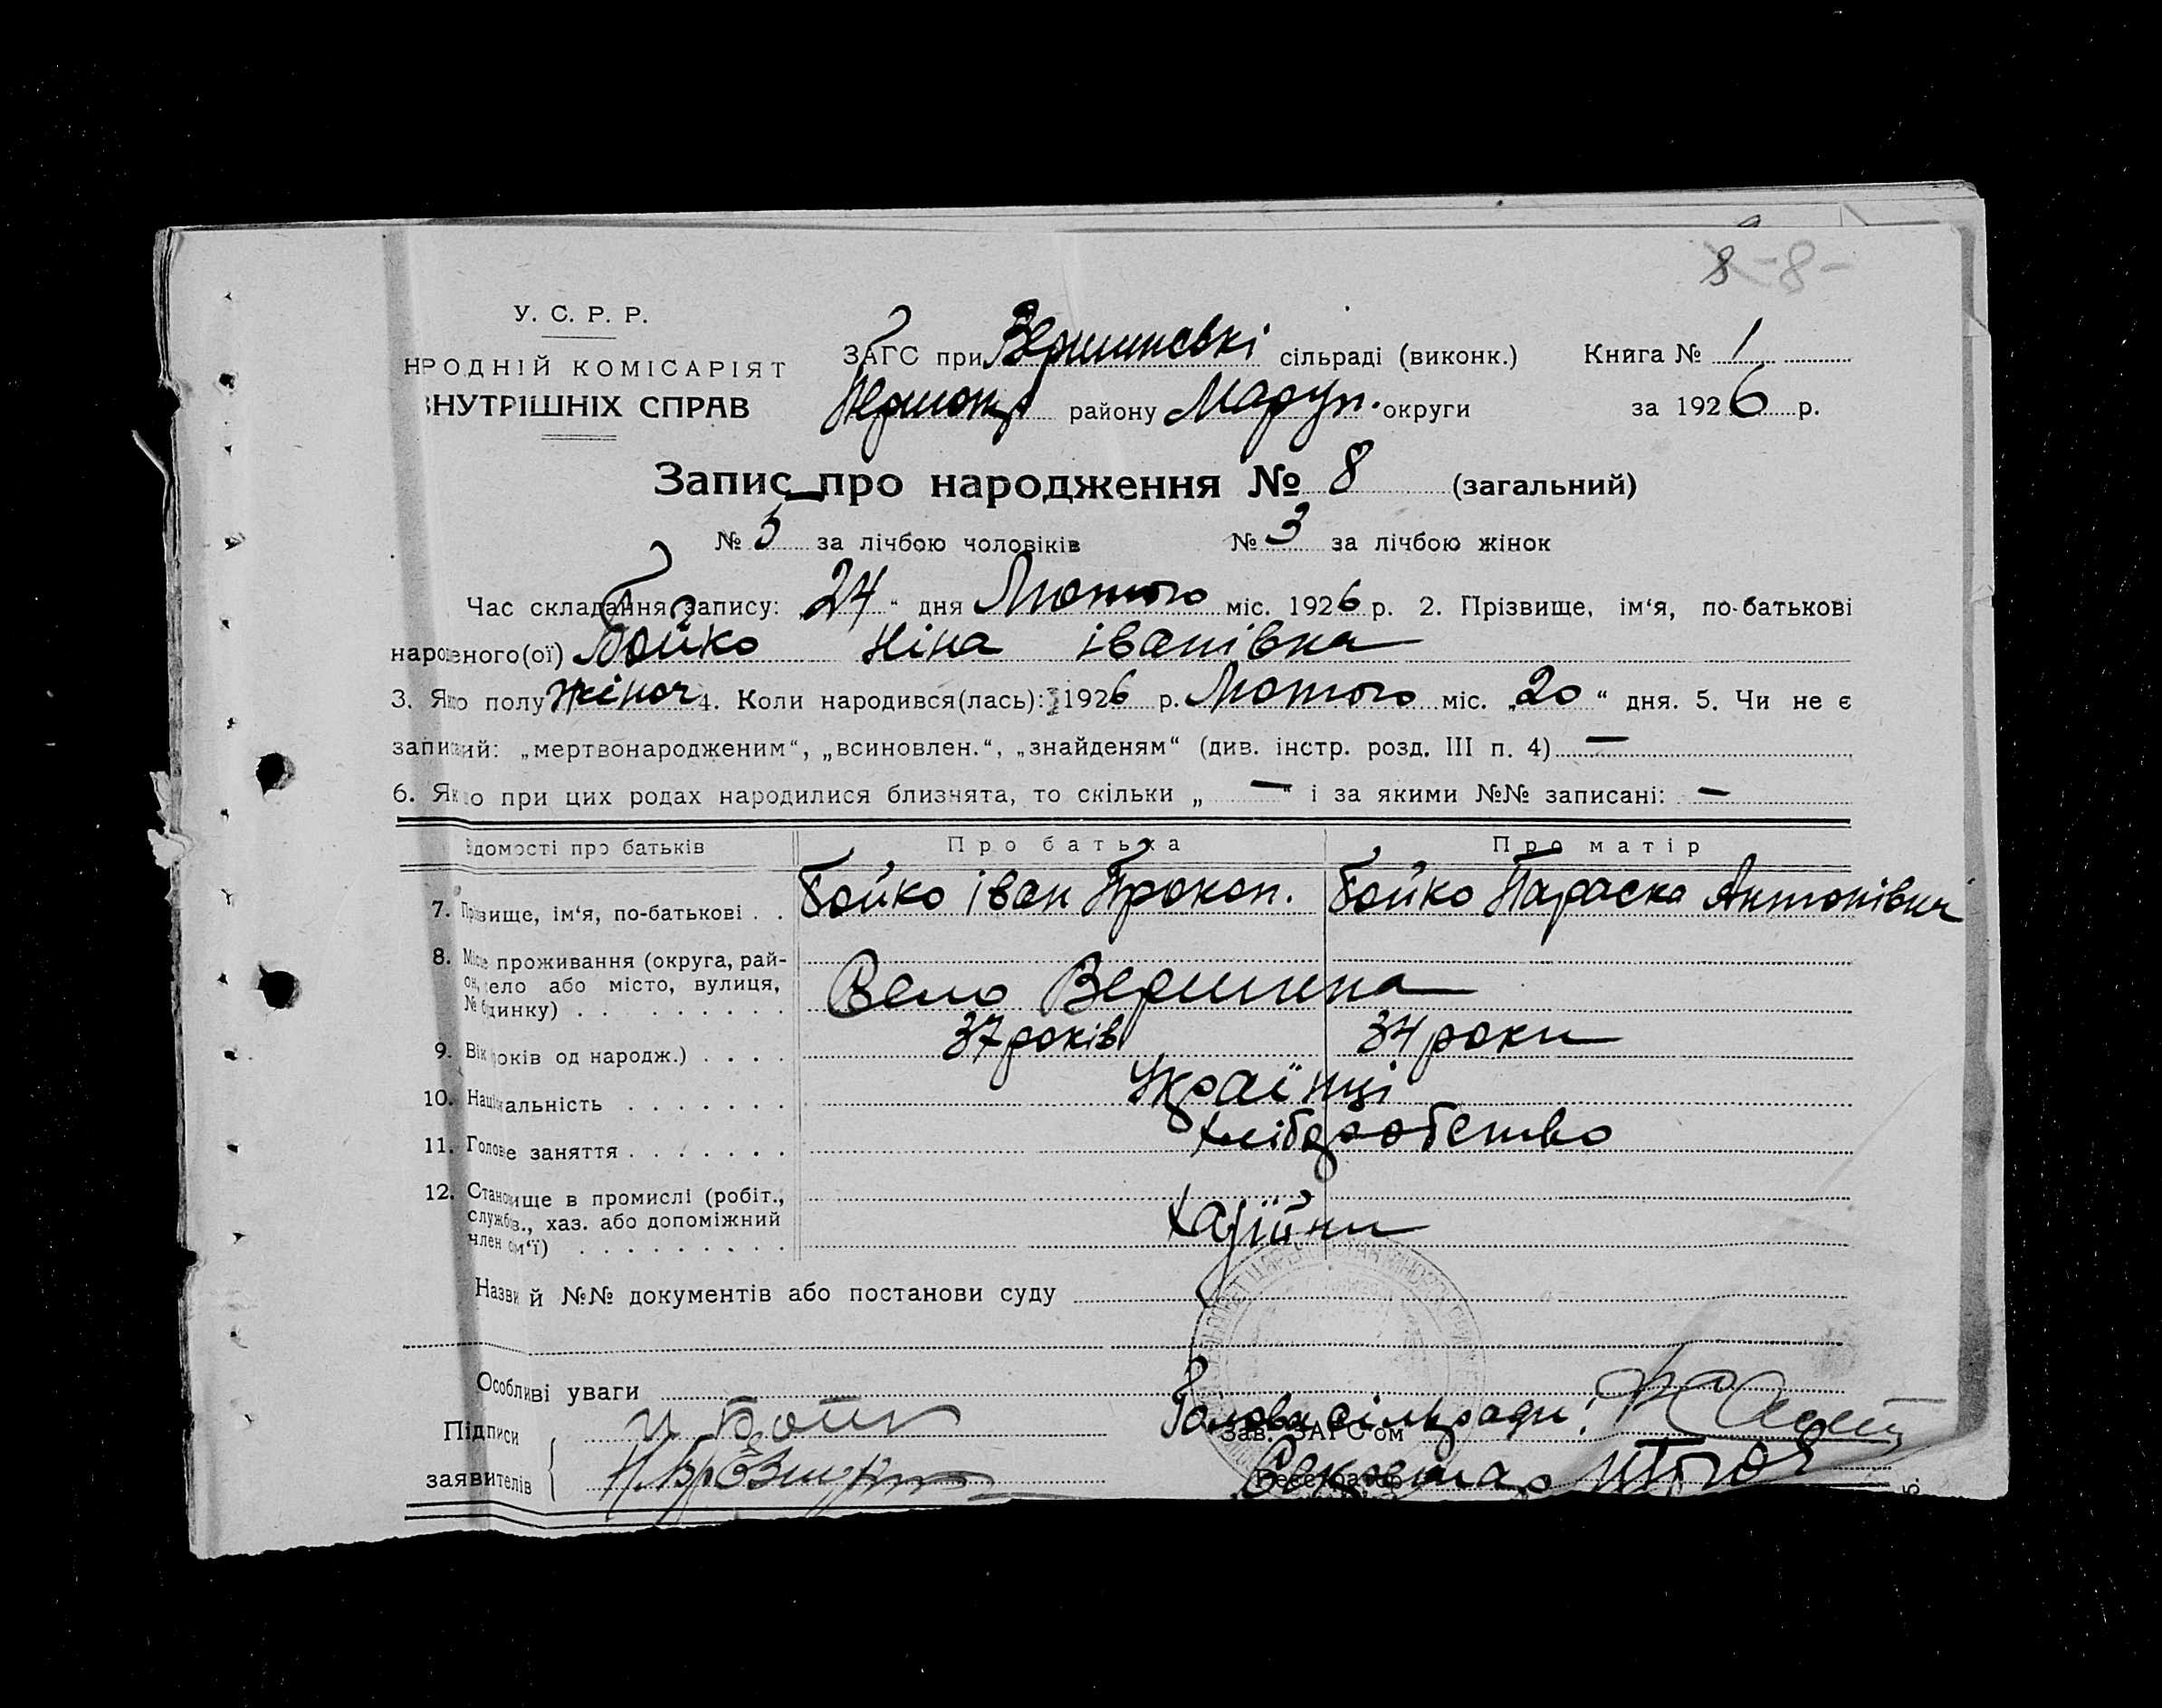 8 -8-
У. С. Р. Р.
НРОДНІЙ КОМІСАРІЯТ
ВНУТРІШНІХ СПРАВ
ЗАГС при Вершинській сільраді (виконк.) Книга № 1
району Маруп. округи за 1926 р.
Запис про народження № 8 (загальний)
№ 5 за лічбою чоловіків № 3 за лічбою жінок
Час складання запису: „24“ дня Лютого міс. 1926 р. 2. Прізвище, ім‘я, по-батькові
народженого(ої) Бойко Ніна іванівна
3. Якого полу жіноч 4. Коли народився(лась): 1926 р. Лютого міс. „20“ дня. 5. Чи не є
записаний: „мертвонародженим“, „всиновлен.“, „знайденям“ (див. інстр. розд. III п. 4) —
6. Якщо при цих родах народилися близнята, то скільки „—“ і за якими №№ записані: —
Відомості про батьків Про батька Про матір
7. Прізвище, ім‘я, по-батькові . . Бойко іван Прокоп. Бойко Параска Антонівна
8. Місце проживання (округа, рай-
он, село або місто, вулиця,
№ будинку) . . . . . . . . . Село Вершина
9. Вік років од народж.) . . . . 37 років 34 роки
10. Національність . . . . . . . Українці
11. Голове заняття . . . . . . . хліборобство
12. Становище в промислі (робіт.,
службов., хаз. або допоміжний
член сім‘ї) . . . . . . . . .
Назви й №№ документів або постанови суду
Особливі уваги
Підписи И Бойко Голова сільради:
Зав. ЗАГС‘ом
заявителів Секретар